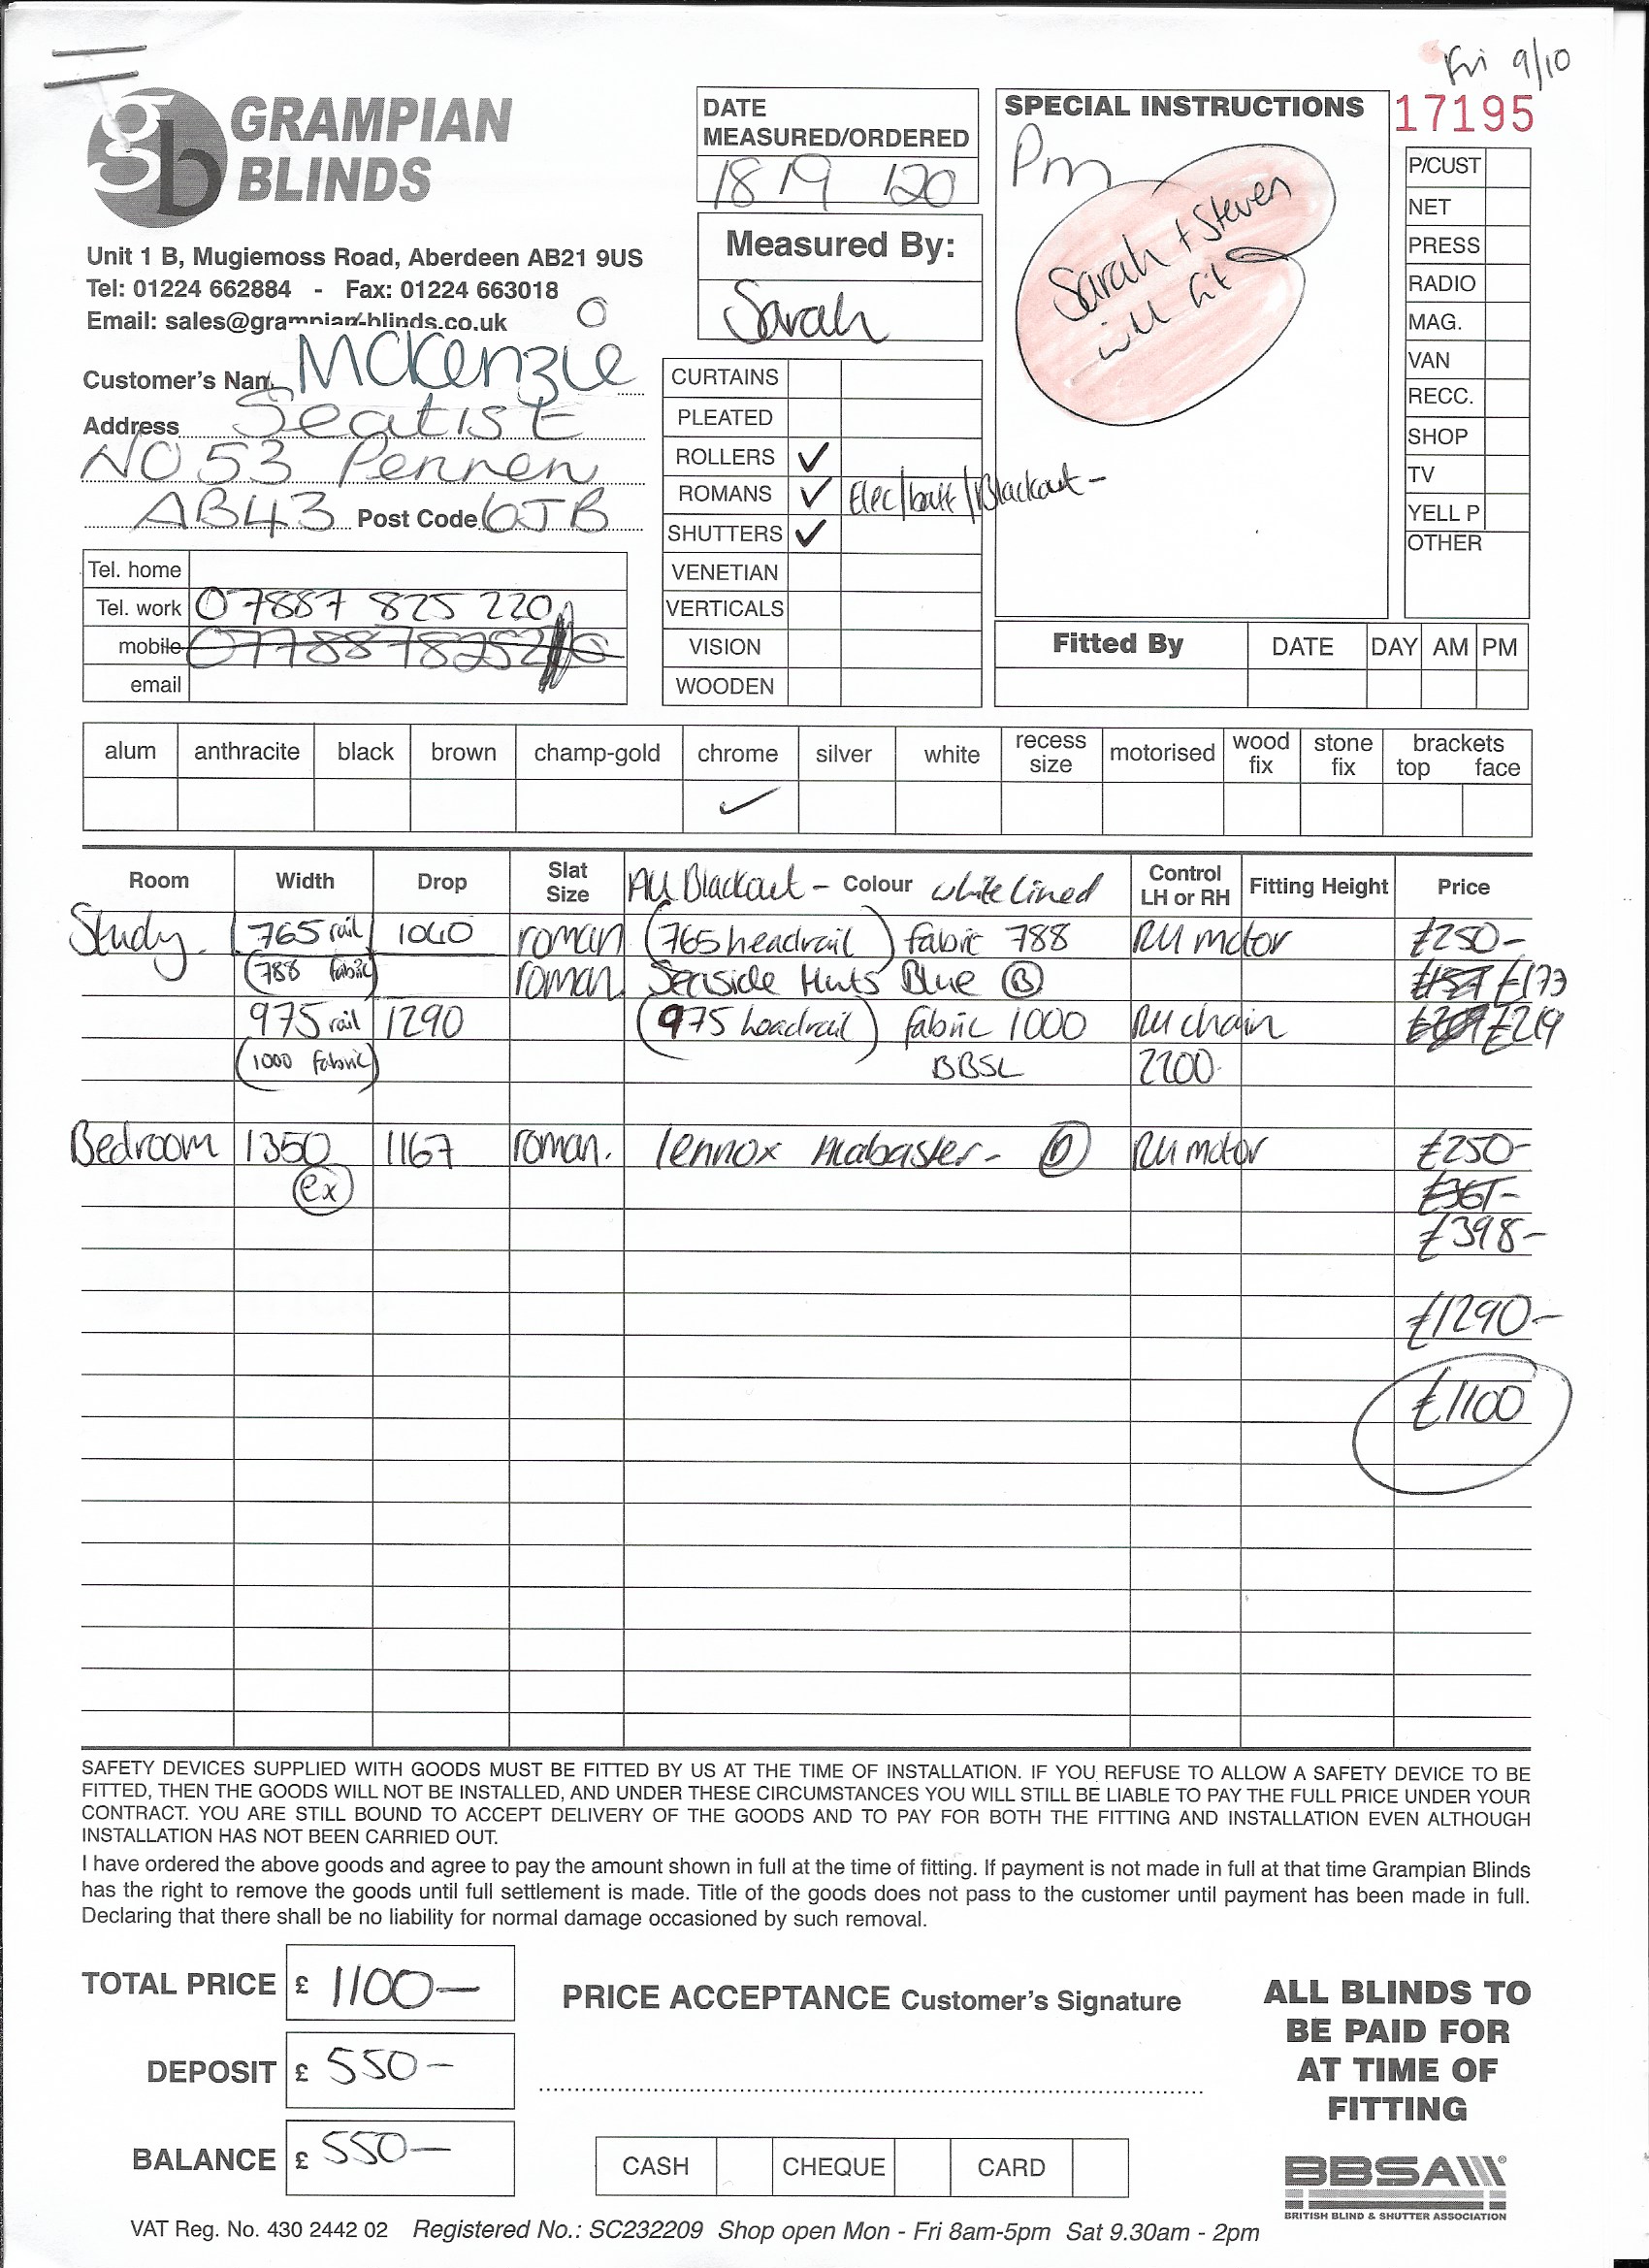 Fri 9/10
17195
GRAMPIAN
BLINDS
Unit 1 B, Mugiemoss Road, Aberdeen AB21 9US
Tel: 01224 662884 - Fax: 01224 663018
Email: sales@grampian-blinds.co.uk
Customer's Nam McKenzie
Address Seatist
NO 53 Pennen
AB43 Post Code 6JB
Tel. home
Tel. work 07887 825 220
mobile
email
DATE
MEASURED/ORDERED
18 / 9 / 20
Measured By:
Sarah
CURTAINS
PLEATED
ROLLERS ✓
ROMANS ✓ Elec/batt/Blackout -
SHUTTERS ✓
VENETIAN
VERTICALS
VISION
WOODEN
SPECIAL INSTRUCTIONS
Pm
Sarah + Steven
will fit
P/CUST
NET
PRESS
RADIO
MAG.
VAN
RECC.
SHOP
TV
YELL P
OTHER
Fitted By DATE DAY AM PM
alum anthracite black brown champ-gold chrome silver white recess size motorised wood fix stone fix brackets top face
✓
Room Width Drop Slat Size All Blackout - Colour white lined Control LH or RH Fitting Height Price
Study 765 rail 1040 roman (765 headrail) fabric 788 RH motor £250-
(788 fabric) roman Seaside Huts Blue (B) £173
975 rail 1290 (975 headrail) fabric 1000 RH chain £219
(1000 fabric) BBSL 2200
Bedroom 1350 1167 roman. lennox Alabaster - (D) RH motor £250-
(ex) £367-
£398-
£1290-
£1100
SAFETY DEVICES SUPPLIED WITH GOODS MUST BE FITTED BY US AT THE TIME OF INSTALLATION. IF YOU REFUSE TO ALLOW A SAFETY DEVICE TO BE
FITTED, THEN THE GOODS WILL NOT BE INSTALLED, AND UNDER THESE CIRCUMSTANCES YOU WILL STILL BE LIABLE TO PAY THE FULL PRICE UNDER YOUR
CONTRACT. YOU ARE STILL BOUND TO ACCEPT DELIVERY OF THE GOODS AND TO PAY FOR BOTH THE FITTING AND INSTALLATION EVEN ALTHOUGH
INSTALLATION HAS NOT BEEN CARRIED OUT.
I have ordered the above goods and agree to pay the amount shown in full at the time of fitting. If payment is not made in full at that time Grampian Blinds
has the right to remove the goods until full settlement is made. Title of the goods does not pass to the customer until payment has been made in full.
Declaring that there shall be no liability for normal damage occasioned by such removal.
TOTAL PRICE £ 1100-
DEPOSIT £ 550-
BALANCE £ 550-
PRICE ACCEPTANCE Customer's Signature
CASH CHEQUE CARD
ALL BLINDS TO
BE PAID FOR
AT TIME OF
FITTING
BBSA
BRITISH BLIND & SHUTTER ASSOCIATION
VAT Reg. No. 430 2442 02 Registered No.: SC232209 Shop open Mon - Fri 8am-5pm Sat 9.30am - 2pm